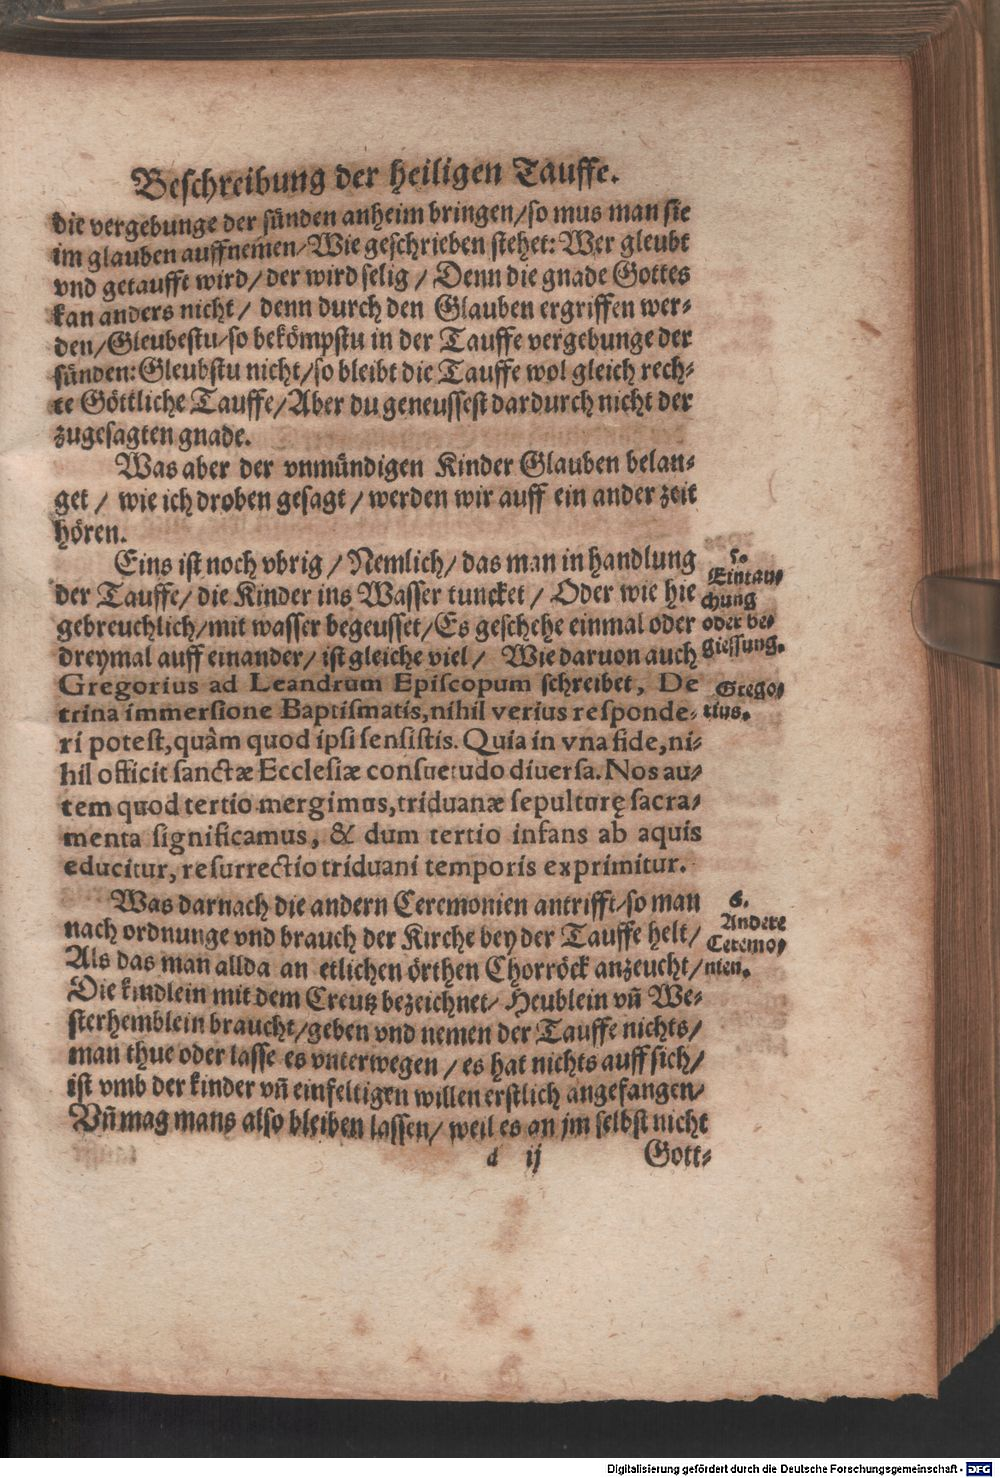 Beschreibung der heiligen Tauffe.
die vergebunge der sünden anheim bringen/so mus man sie
im glauben auffnemen/Wie geschrieben stehet: Wer gleubt
vnd getaufft wird/ der wird selig / Denn die gnade Gottes
kan anders nicht / denn durch den Glauben ergriffen wer-
den/Gleubestu/so bekömpstu in der Tauffe vergebunge der
sünden: Gleubstu nicht/so bleibt die Tauffe wol gleich rech-
te Göttliche Tauffe/Aber du geneussest dardurch nicht der
zugesagten gnade.
Was aber der vnmündigen Kinder Glauben belan-
get / wie ich droben gesagt / werden wir auff ein ander zeit
hören.
Eins ist noch vbrig / Nemlich/ das man in handlung
der Tauffe/ die Kinder ins Wasser tuncket / Oder wie hie
gebreuchlich/mit wasser begeusset/Es geschehe einmal oder
dreymal auff einander/ ist gleiche viel / Wie daruon auch
Gregorius ad Leandrum Episcopum schreibet, De
trina immersione Baptismatis,nihil verius responde-
ri potest,quàm quod ipsi sensistis. Quia in vna fide,ni-
hil officit sanctæ Ecclesiæ consuetudo diuersa. Nos au-
tem quod tertio mergimus,triduanæ sepulturę sacra-
menta significamus, & dum tertio infans ab aquis
educitur, resurrectio triduani temporis exprimitur.
Was darnach die andern Ceremonien antrifft/so man
nach ordnunge vnd brauch der Kirche bey der Tauffe helt/
Als das man allda an etlichen örthen Chorröck anzeucht/
Die kindlein mit dem Creutz bezeichnet/ Heublein vñ We-
sterhemblein braucht/geben vnd nemen der Tauffe nichts/
man thue oder lasse es vnterwegen / es hat nichts auff sich/
ist vmb der kinder vñ einfeltigen willen erstlich angefangen/
Vñ mag mans also bleiben lassen/ weil es an jm selbst nicht
d ij Gott-
5.
Eintau-
chung
oder be-
giessung.
Grego-
rius.
6.
Andere
Ceremo-
nien.
Digitalisierung gefördert durch die Deutsche Forschungsgemeinschaft - DFG